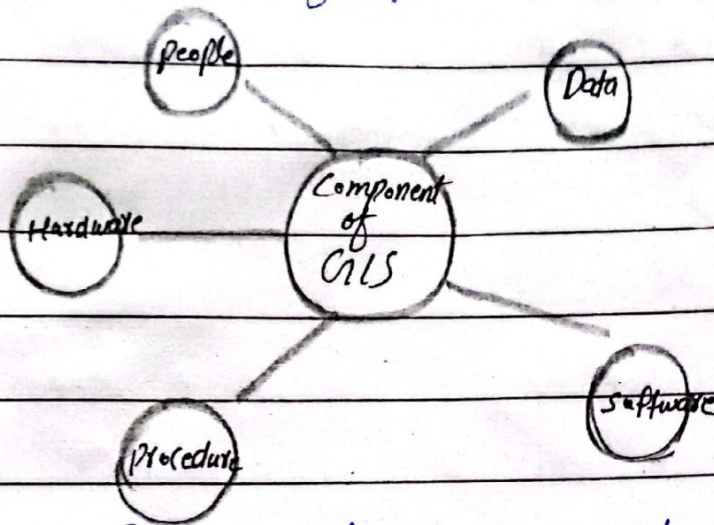 people
Data
Hardware
Component
of
GIS
software
procedure